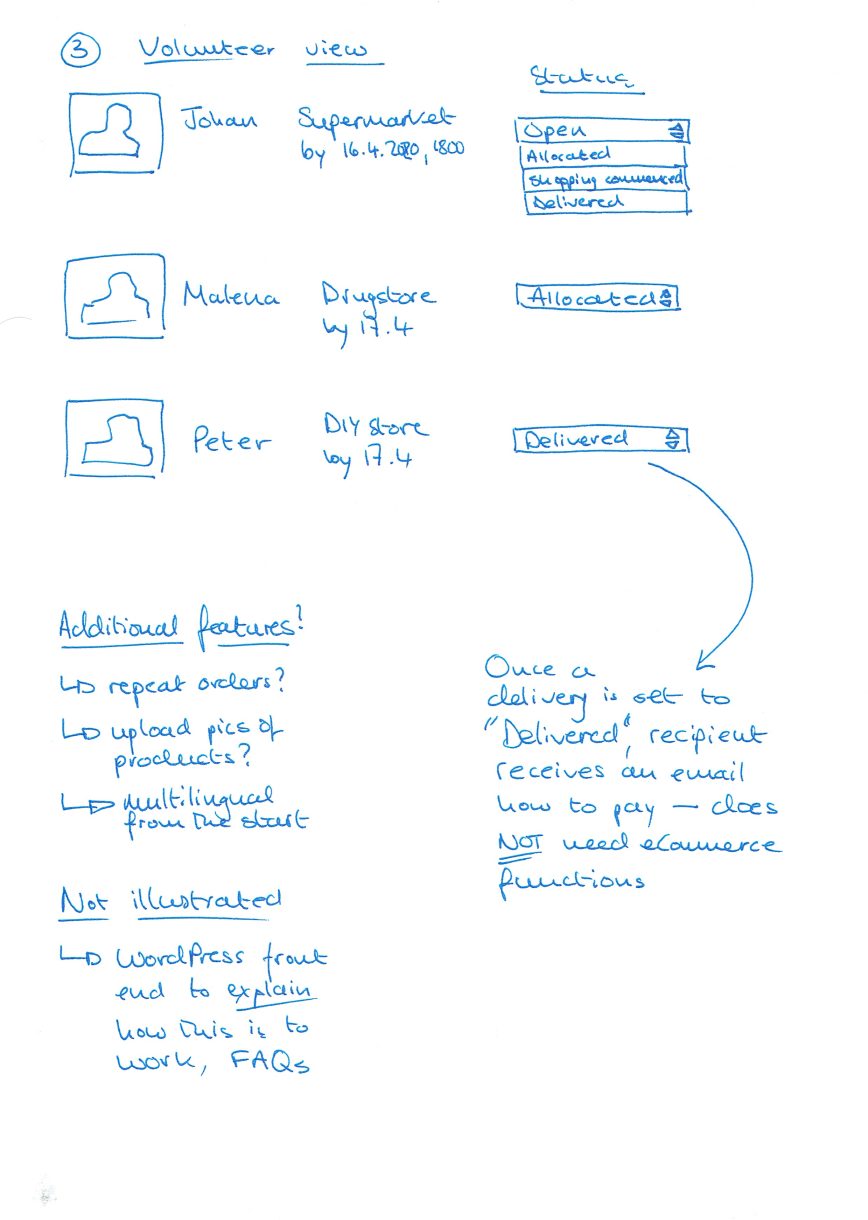 3 Volunteer view
Status
Johan Supermarket
by 16.4.2020, 1800
Open
Allocated
Shopping commenced
Delivered
Malena Drugstore
by 17.4
Allocated
Peter DIY store
by 17.4
Delivered
Additional features?
repeat orders?
upload pics of
products?
multilingual
from the start
Once a
delivery is set to
"Delivered", recipient
receives an email
how to pay — does
NOT need eCommerce
functions
Not illustrated
WordPress front
end to explain
how this is to
work, FAQs